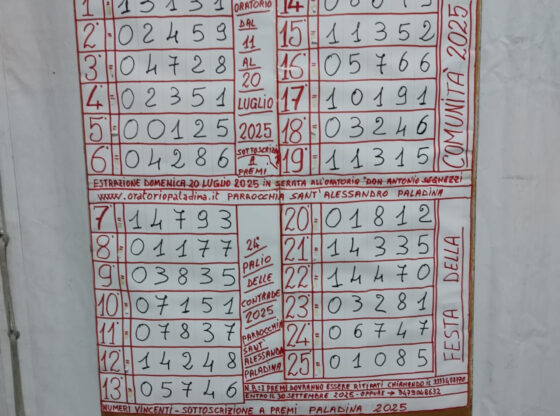 1°= 13131
2°= 02459
3°= 04728
4°= 02351
5°= 00125
6°= 04286
ORATORIO
DAL
11
AL
20
LUGLIO
2025
SOTTOSCRIZ.
A
PREMI
14°=
15°= 11352
16°= 05766
17°= 10191
18°= 03246
19°= 11315
COMUNITÀ 2025
ESTRAZIONE DOMENICA 20 LUGLIO 2025 IN SERATA ALL'ORATORIO "DON ANTONIO SEGHEZZI
www.oratoriopaladina.it PARROCCHIA SANT'ALESSANDRO PALADINA
7°= 14793
8°= 01177
9°= 03835
10°= 07151
11°= 07837
12°= 14248
13°= 05746
24°
PALIO
DELLE
CONTRADE
2025
PARROCCHIA
SANT'
ALESSANDRO
PALADINA
20°= 01812
21°= 14335
22°= 14470
23°= 03281
24°= 06747
25°= 01085
FESTA DELLA
N.B.: I PREMI DOVRANNO ESSERE RITIRATI CHIAMANDO IL
ENTRO IL 30 SETTEMBRE 2025 - OPPURE → 3479048632
NUMERI VINCENTI - SOTTOSCRIZIONE A PREMI PALADINA 2025